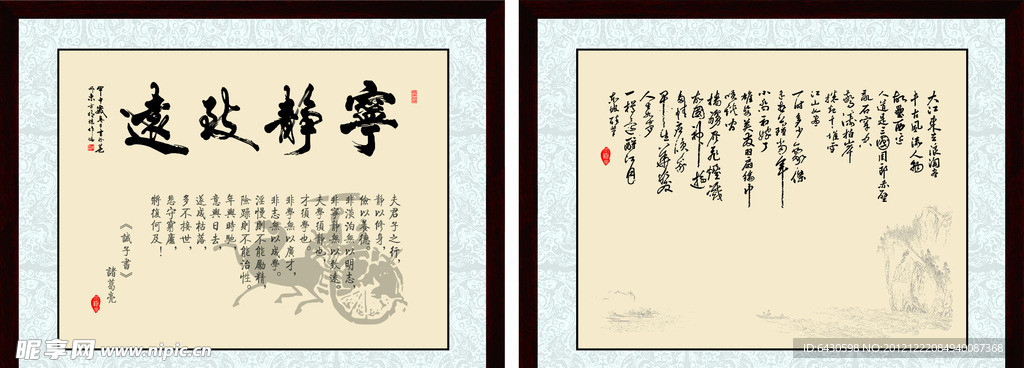 寧靜致遠
夫君子之行，
靜以修身，
儉以養德。
非淡泊無以明志，
非寧靜無以致遠。
夫學須靜也，
才須學也。
非學無以廣才，
非志無以成學。
淫慢則不能勵精，
險躁則不能治性。
年與時馳，
意與日去，
遂成枯落，
多不接世，
悲守窮廬，
將復何及！
《誡子書》
諸葛亮
大江東去浪淘盡
千古風流人物
故壘西邊
人道是三國周郎赤壁
亂石穿空
驚濤拍岸
捲起千堆雪
江山如畫
一時多少豪傑
遙想公瑾當年
小喬初嫁了
雄姿英發羽扇綸巾
故國神遊
多情應笑我
早生華髮
一樽還酹江月
昵享网 www.nipic.cn
ID:6430598 NO:20121222084940087368